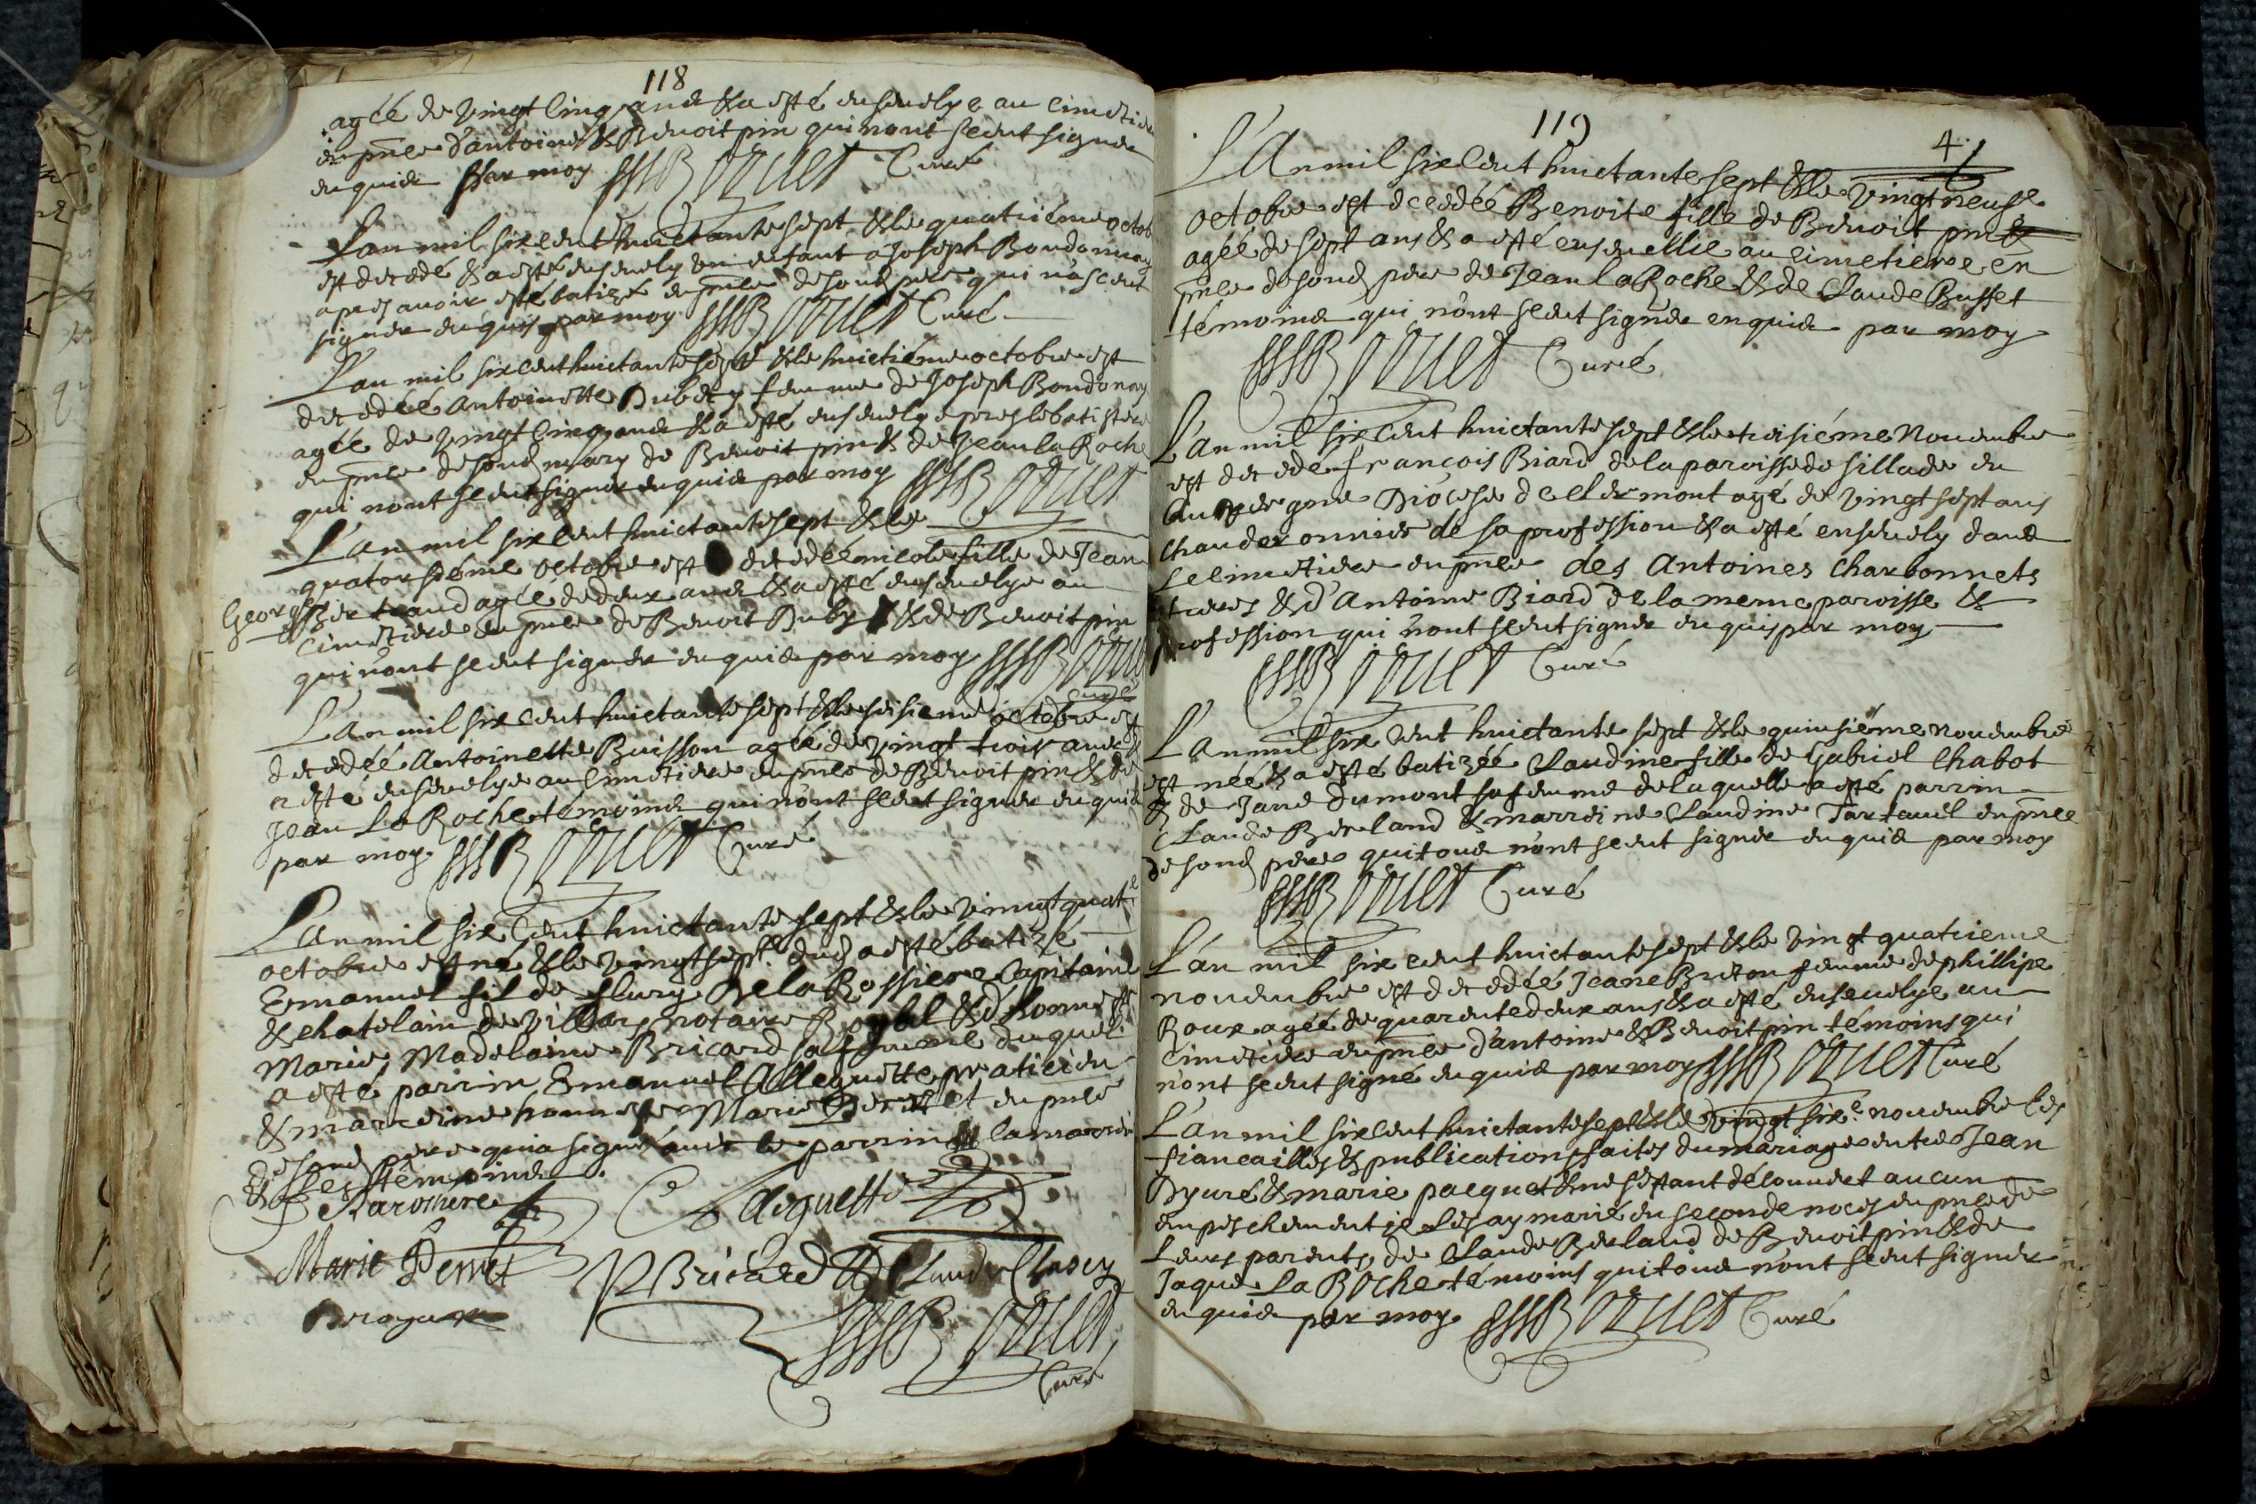 118
agée de vingt cinq ans & a esté ensevelye au cimetiere
en pnce d'antoine & Benoit pin qui n'ont sceut signer
enquis par moy Curé
L'an mil six cent huictante sept & le quatriéme octob
est decedé & a esté ensevely un enfant a Joseph Bondonnay
apres avoir esté batizé en pnce de sond pere qui n'a sceut
signer enquis par moy Curé
L'an mil six cent huictante sept & le huictiéme octobre est
decedéé Antoinette Dubécy femme de Joseph Bondonay
agée de vingt cinq ans & a esté ensevelye pres le batistere
en pnce de sond mary de Benoit pin & de Jean la Roche
qui n'ont sceut signer enquis par moy
L'an mil six cent huictante sept & le
quatorsiéme octobre est decedéé nicole fille de Jean
George
Berteaud agéé de deux ans & a esté ensevelye au
cimetiere en pnce de Benoit Duby & de Benoit pin
qui n'ont sceut signer enquis par moy
Curé
L'an mil six cent huictante sept & le seisieme octobre est
decedéé Antoinette Buisson agéé de vingt trois ans &
a esté ensevelye au cimetiere en pnce de Benoit pin & de
Jean La Roche témoins qui n'ont sceut signer enquis
par moy Curé
L'an mil six cent huictante sept & le vingt quat.e
octobre est né & le vingt sept.e dud a esté batizé
Emanuel fils de fleury De la Rossiere Capitaine
& chatelain de Villars notaire Royal & d'honneste
Marie Madelaine Bricard sa femme duquel
a esté parrin Emanuel Alleguette praticien
& marreine honneste Marie Perret en pnce
de sond pere qui a signé avec le parrin la marrine
& les témoins.
Larossiere
Marie Perret
PBricard Claude
119
4
L'An mil six Cent huictante sept & le vingt neufe
octobre est decedéé Benoite fille de Benoit pin
agéé de sept ans & a esté ensevellie au cimetiere en
pnce de sond pere de Jean la Roche & de Claude Busset
témoins qui n'ont sceut signer enquis par moy
Curé
L'an mil six cent huictante sept & le troisiéme Novembre
est decedé François Biard de la paroisse de sillade en
Auvergne Diocese de Clermont agé de vingt sept ans
chauderonnier de sa profession & a esté ensevely dans
le cimetiere en pnce des Antoines Charbonnets
freres & d'Antoine Biard de la meme paroisse &
profession qui n'ont sceut signer enquis par moy
Curé
L'an mil six cent huictante sept & le quinsiéme novembre
est néé & a esté batizéé Claudine fille de Gabriel Chabot
& de Jane Dumont sa femme de laquelle a esté parrin
Claude Berland & marreine Claudine Tartaud en pnce
de sond pere qui tous n'ont sceut signer enquis par moy
Curé
L'an mil six cent huictante sept & le vingt quatrieme
novembre est decedéé Jeane Breton femme de phillipe
Roux agéé de quarente deux ans & a esté ensevelye au
cimetiere en pnce d'antoine & Benoit pin témoins qui
n'ont sceut signé enquis par moy Curé
L'an mil six cent huictante sept & le vingt six.e novembre les
fiancailles & publications faites du mariage entre Jean
Dyuré & marie pacquet & ne s'estant découvert aucun
empeschement je les ay marié en seconde noces en pnce de
Leurs parents, de Claude Berland de Benoit pin & de
Jaque La Roche témoins qui tous n'ont sceut signer
enquis par moy Curé